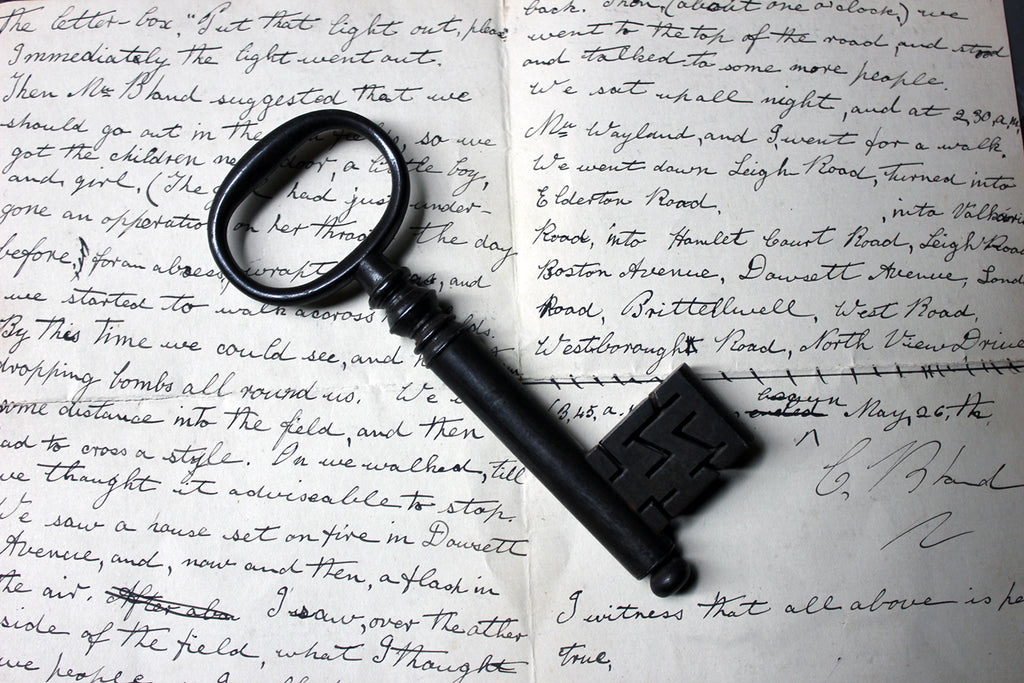 the letter-box, "Put that light out, please
Immediately the light went out.
Then Mr Bland suggested that we
should go out in the fields, so we
got the children next door, a little boy,
and, girl, (The had just under-
gone an opperation on her throat the day
before, for an abcess, wrapt and
we started to walk acoross
By this time we could see, and
dropping bombs all round us. We
some distance into the field, and then
had to cross a style. On we walked, till
we thought it adviseable to stop.
We saw a house set on fire in Dowsett
Avenue, and, now and then, a flash in
the air. After a I saw, over the other
side of the field, what I thought
we people
back. Then, (about one o'clock,) we
went to the top of the road, and stood
and talked to some more people.
We sat up all night, and at 2,30, a,m,
Mr Wayland, and I went for a walk.
We went down Leigh Road, turned into
Elderton Road, , into Valkarie
Road, into Hamlet Court Road, Leigh Road
Boston Avenue, Dowsett Avenue, Lond
Road, Brittellwell, West Road,
Westborough Road, North View Drive
(B,45, a, ended May, 26, th,
C. Bland
I witness that all above is pe
true,